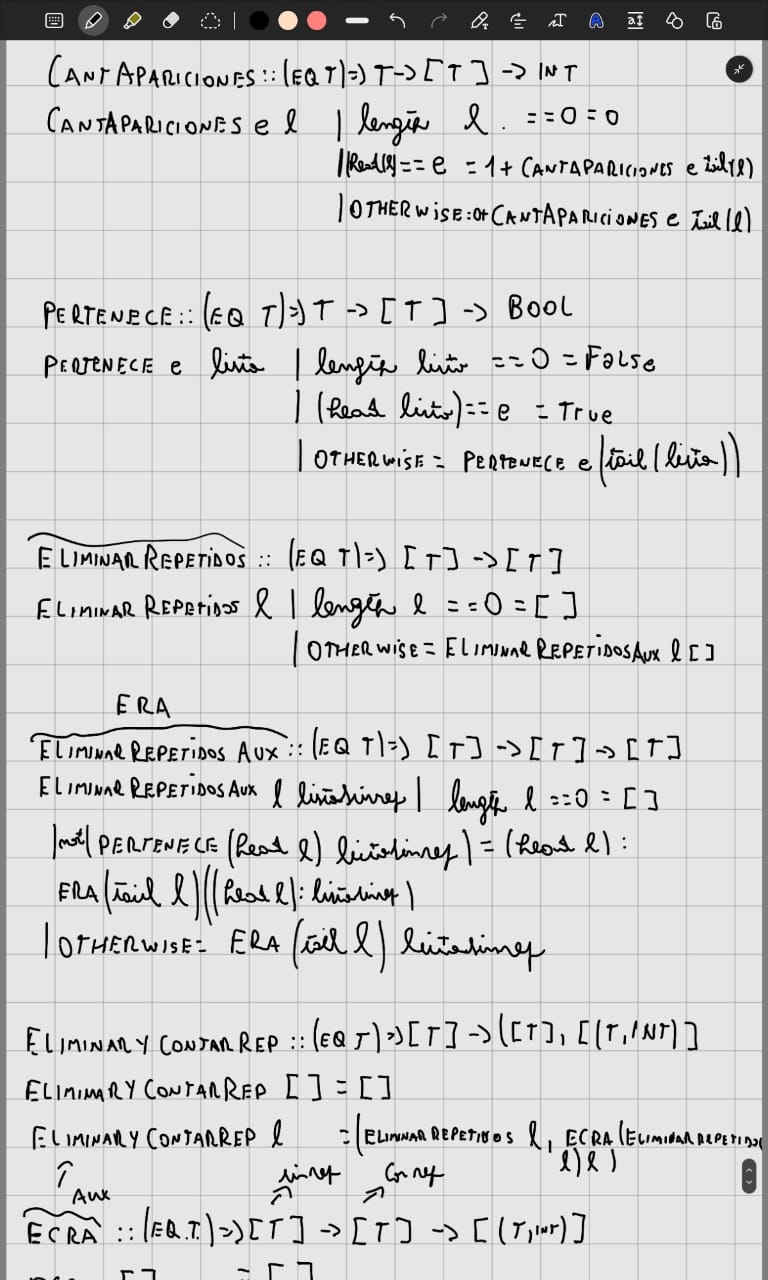 CANTAPARICIONES :: (EQ T)=) T -> [T] -> INT
CANTAPARICIONES e l | length l . ==0 = 0
|(head(l) == e = 1+ CANTAPARICIONES e tail(l)
| OTHERWISE: 0+ CANTAPARICIONES e tail(l)
PERTENECE :: (EQ T)=) T -> [T] -> BOOL
PERTENECE e lista | length lista ==0 = FALSe
| (head lista) == e = True
| OTHERWISE = PERTENECE e (tail (lista))
ELIMINAR REPETIDOS :: (EQ T)=) [T] -> [T]
ELIMINAR REPETIDOS l | length l ==0 = []
| OTHERWISE = ELIMINAR REPETIDOS AUX l []
ERA
ELIMINAR REPETIDOS AUX :: (EQ T)=) [T] -> [T] -> [T]
ELIMINAR REPETIDOS AUX l listasinrep | length l ==0 = []
|not( PERTENECE (head l) listasinrep) = (head l) :
ERA (tail l) ((head l): listasinrep)
| OTHERWISE = ERA (tail l) listasinrep
ELIMINAR Y CONTAR REP :: (EQ T)=)[T] -> ([T], [(T,INT)]
ELIMINAR Y CONTAR REP [] = []
ELIMINAR Y CONTAR REP l = (ELIMINAR REPETIDOS l, ECRA (ELIMINAR REPETIDOS
l) l )
AUX sinrep Con rep
ECRA :: (EQ.T.)=)[T] -> [T] -> [(T,INT)]